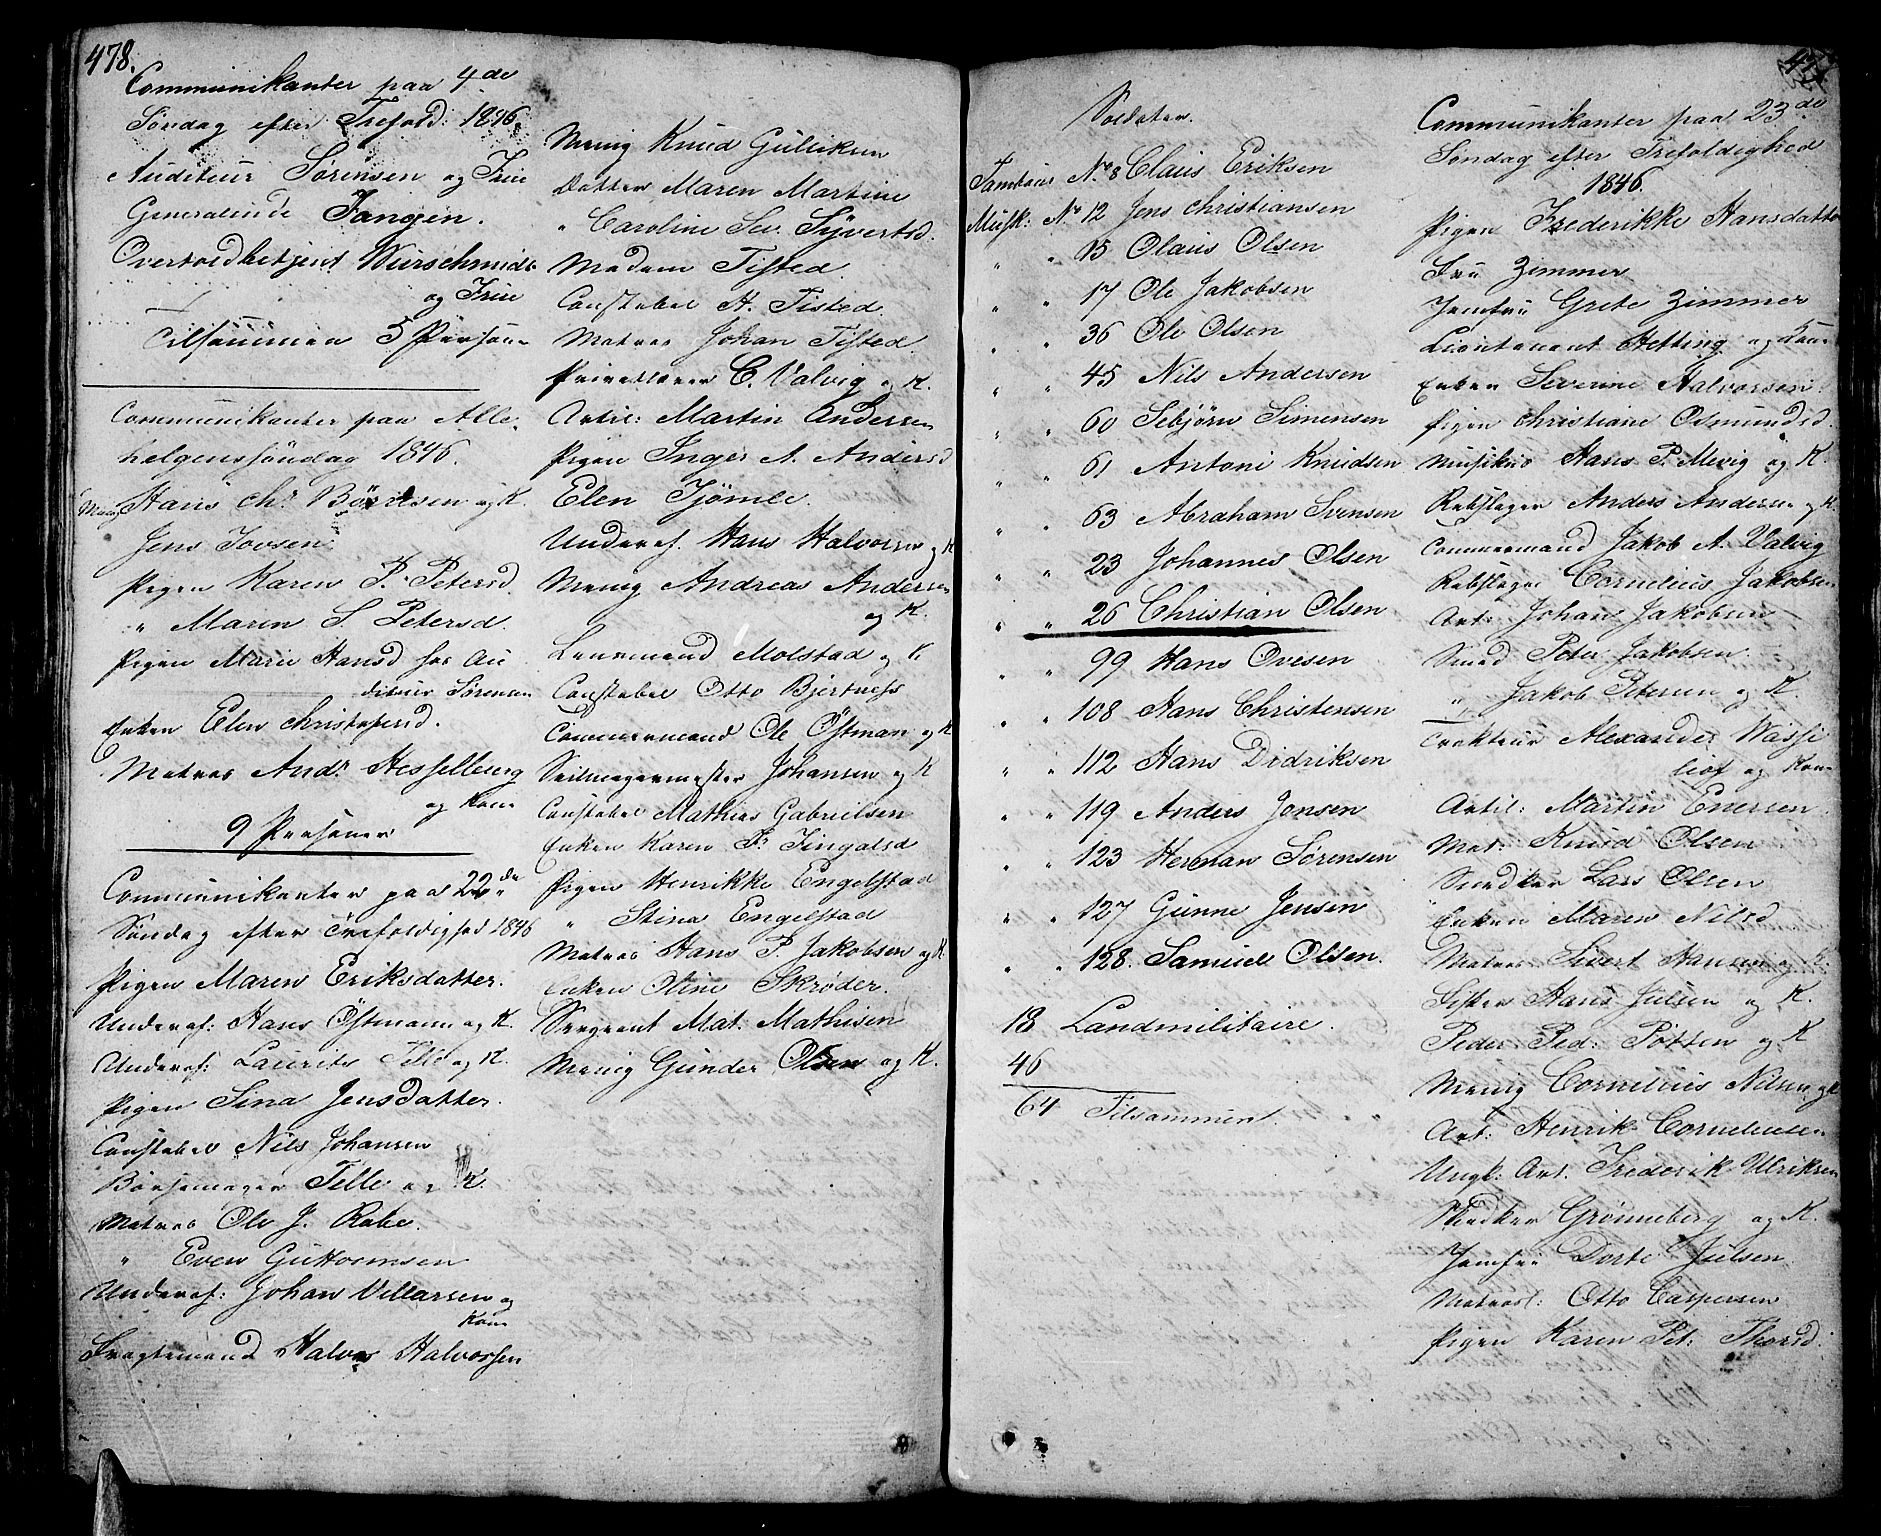 478.
Communikanter paa 4de
Søndag efter Trefold: 1846.
Auditeur Sørensen og Frue
Generalinde Tangen.
Overtoldbetjent Wurschmidt
og Frue
Tilsammen 5 Personer
Communikanter paa Alle-
helgenssöndag 1846.
Menig Hans Chr. Börresen og K.
Jens Tovsen
Pigen Karen P. Petersd.
" Maren S. Petersd.
Pigen Marie Hansd hos Au
diteur Sørensen
Enken Elen Christophersd.
Matros Andr. Hesselberg
og Kone
9 Personer
Communikanter paa 22de
Søndag efter Trefoldighed 1846
Pigen Maren Eriksdatter.
Underof: Hans Östmann og K.
Underof: Laurits Telle og K.
Pigen Sina Jensdatter.
Constabel Nils Johansen
Børsemager Telle og K.
Matros Ole J. Rabe.
" Even Guttormsen
Underof: Johan Villarsen og
Kone
Fragtemand Halvor Halvorsen
Menig Knud Gulliksen
Datter Maren Martine
" Caroline Sev. Syvertsd.
Madam Tisted.
Constabel H. Tisted.
Matros Johan Tisted.
Privatlærer C. Valvig og K.
Artil: Martin Andersen
Pigen Inger A. Andersd
Elen Tjömle
Underof. Hans Halvorsen og K
Menig Andreas Andersen
og K.
Lensmand Molstad og K
Constabel Otto Bjertnæss
Tömmermand Ole Östman og K
Seilmagermester Johansen og K
Constabel Mathias Gabrielsen
Enken Karen F. Tingalsd
Pigen Henrikke Engelstad
" Stina Engelstad
Matros Hans P. Jakobsen og K.
Enken Oline Skrøder.
Sergeant Mat. Mathisen
Menig Gunder Olsen og K.
Soldater.
Tambour No 8 Claus Eriksen
Musk: No 12 Jens Christiansen
" " 15 Olaus Olsen
" " 17 Ole Jakobsen
" " 36 Ole Olsen
" " 45 Nils Andersen
" " 60 Sebjørn Simensen
" " 61 Antoni Knudsen
" " 63 Abraham Svensen
" " 23 Johannes Olsen
" " 26 Christian Olsen
" " 99 Hans Ovesen
" " 108 Hans Christensen
" " 112 Hans Didriksen
" " 119 Anders Jonsen
" " 123 Herman Sørensen
" " 127 Gunne Jensen
" " 128. Samuel Olsen.
18 Landmilitaire.
46
64 Tilsammen.
Communikanter paa 23de
Søndag efter Trefoldighed
1846.
Pigen Frederikke Hansdatter
Fru Zimmer
Jomfru Grete Zimmer
Lieutenant Hetting og Kone
Enken Severine Halvorsen
Pigen Christiane Osmundsd.
Musikus Hans P. Mevig og K.
Rebslager Anders Andersen og K.
Tömmermand Jakob A. Valvig
Rebslager Cornelius Jakobsen
Art: Johan Jakobsen
Smed Peter Jakobsen
" Jakob Petersen og K.
Trakteur Alexander Wassi
liof og Kone
Artil: Martin Enersen
Mat: Knud Olsen
Snedker Lars Olsen
Enken Maren Nilsd
Matros Sivert Hansen og K.
Fisker Hans Julien og K.
Peder Ped: Potten og K
Menig Cornelius Nilsen og K
Art: Henrik Corneliusen
Ungk: Art. Frederik Ulriksen
Snedker Grønneberg og K.
Jomfru Dorte Juelsen
Matros: Otto Caspersen
Pigen Karen Pet: Thorsd.